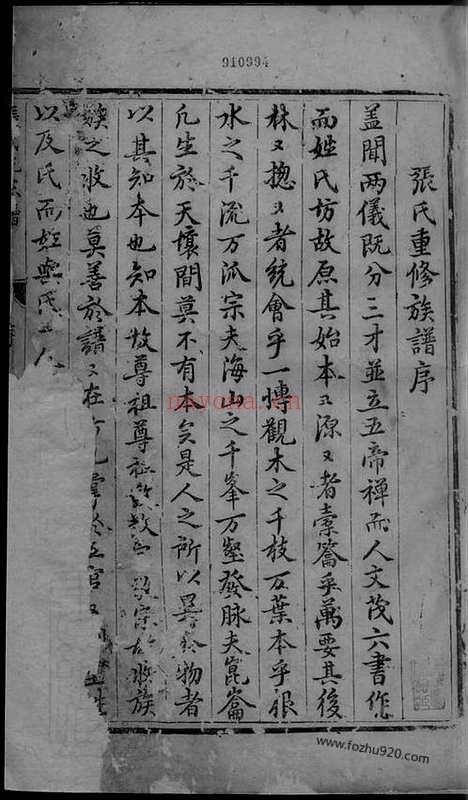 910994
張氏重修族譜序
盖聞兩儀既分三才並立五帝禪而人文茂六書作
而姓氏坊故原其始本〻源〻者橐籥乎萬要其後
林〻揔〻者統會乎一慱觀木之千枝万葉本乎根
水之千流万派宗夫海山之千峯万壑發脉夫崑崙
凡生於天壤間莫不有本矣是人之所以異於物者
以其知本也知本故尊祖尊祖故敬宗敬宗故收族
族之收也莫善於譜〻在
以及氏而
miyona.cn
www.fozhu920.com